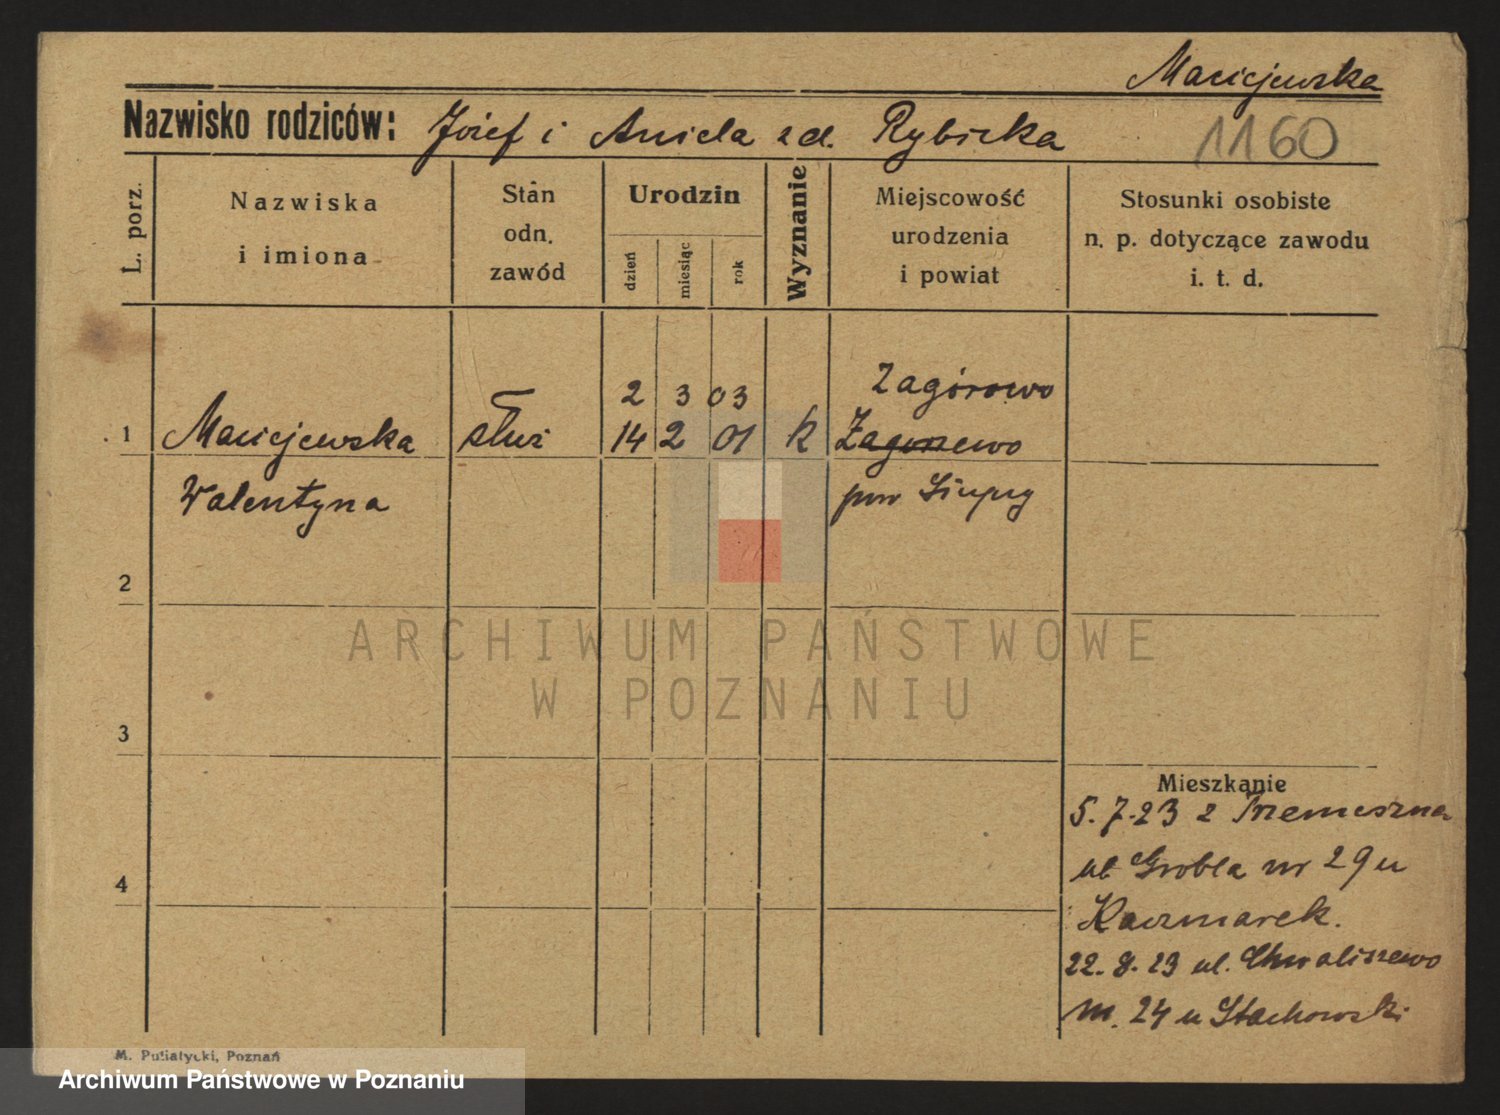 Maciejewska
Nazwisko rodziców: Józef i Aniela zd. Rybicka
1160
L. porz.
Nazwiska
i imiona
Stan
odn.
zawód
Urodzin
dzień
miesiąc
rok
Wyznanie
Miejscowość
urodzenia
i powiat
Stosunki osobiste
n. p. dotyczące zawodu
i. t. d.
2 3 03 Zagórowo
1 Maciejewska służ 14 2 01 k
Walentyna pow Słupcy
2
3
4
Mieszkanie
5.7.23 z Trzemeszna
ul Grobla nr 29 u
Kaczmarek.
22.8.23 ul. Chwaliszewo
nr. 24 u Stachowski
M. Putiatycki, Poznań
ARCHIWUM PAŃSTWOWE
W POZNANIU
Archiwum Państwowe w Poznaniu